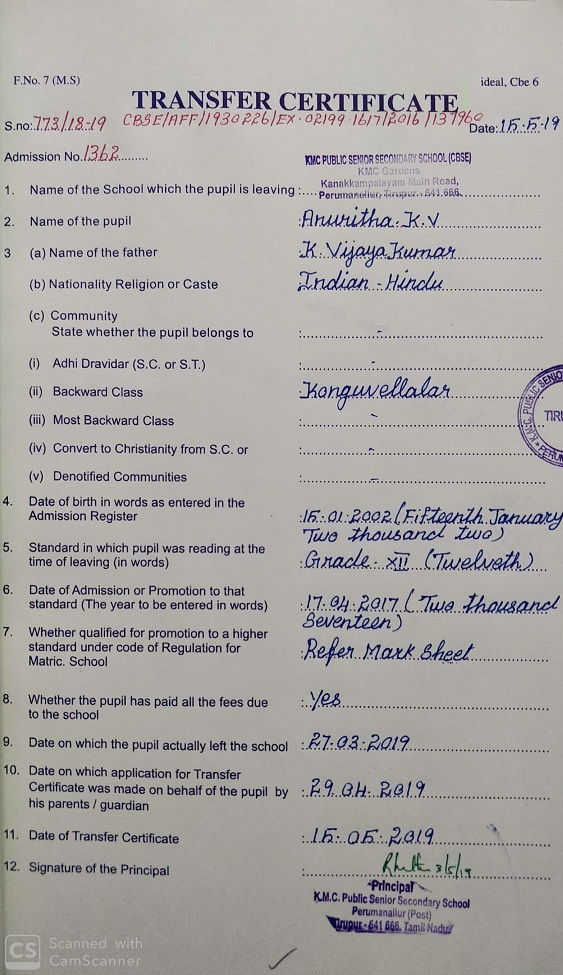 F.No. 7 (M.S)
ideal, Cbe 6
TRANSFER CERTIFICATE
S.no: 773/18-19 CBSE/AFF/1930226/EX-02199-1617/2016/137960 Date: 15-5-19
Admission No. 1362
KMC PUBLIC SENIOR SECONDARY SCHOOL (CBSE)
KMC Gardens
Kanakkampalayam Main Road,
1. Name of the School which the pupil is leaving : Perumanallur, Tirupur - 641 666.
2. Name of the pupil : Anuritha. K.V
3 (a) Name of the father : K. Vijaya Kumar
(b) Nationality Religion or Caste : Indian - Hindu
(c) Community
State whether the pupil belongs to : -
(i) Adhi Dravidar (S.C. or S.T.) : -
(ii) Backward Class : Konguvellalar
(iii) Most Backward Class : -
(iv) Convert to Christianity from S.C. or : -
(v) Denotified Communities : -
4. Date of birth in words as entered in the
Admission Register : 15-01-2002 (Fifteenth January
Two thousand two)
5. Standard in which pupil was reading at the
time of leaving (in words) : Grade - XII (Twelveth)
6. Date of Admission or Promotion to that
standard (The year to be entered in words) : 17.04.2017 (Two thousand
Seventeen)
7. Whether qualified for promotion to a higher
standard under code of Regulation for : Refer Mark Sheet
Matric. School
8. Whether the pupil has paid all the fees due : Yes
to the school
9. Date on which the pupil actually left the school : 27-03-2019
10. Date on which application for Transfer
Certificate was made on behalf of the pupil by : 29.04.2019
his parents / guardian
11. Date of Transfer Certificate : 15-05-2019
12. Signature of the Principal :
Principal
K.M.C. Public Senior Secondary School
Perumanallur (Post)
Tirupur - 641 666. Tamil Nadu
K.M.C. PUBLIC SENIOR
CS Scanned with
CamScanner